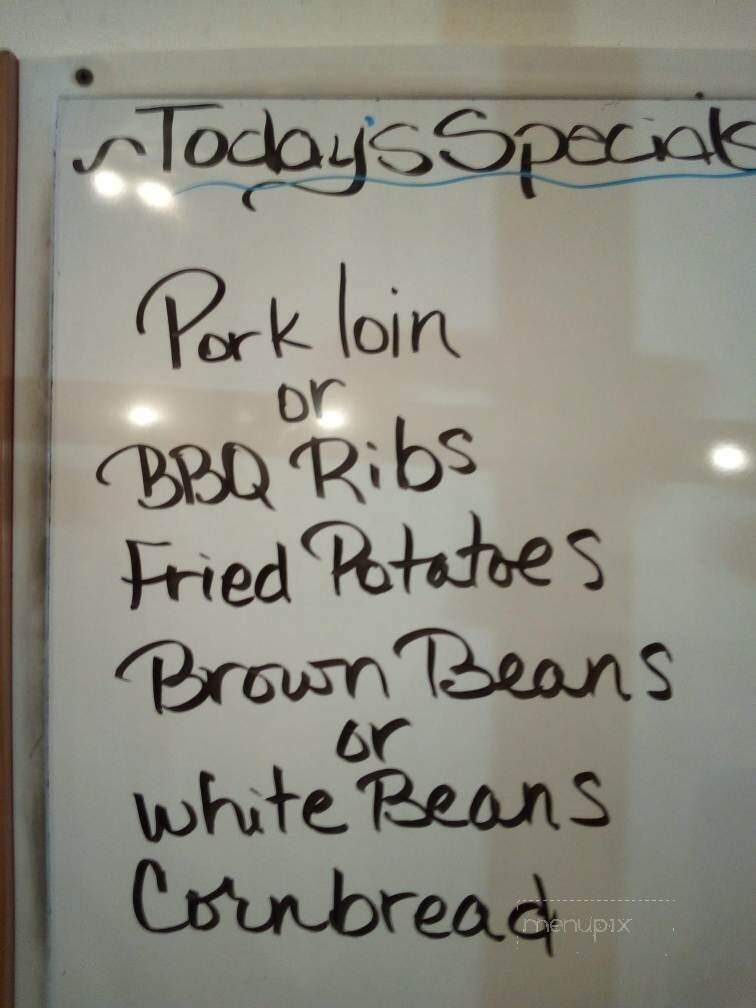 Today's Specials
Pork loin
or
BBQ Ribs
Fried Potatoes
Brown Beans
or
white Beans
Cornbread
menupix